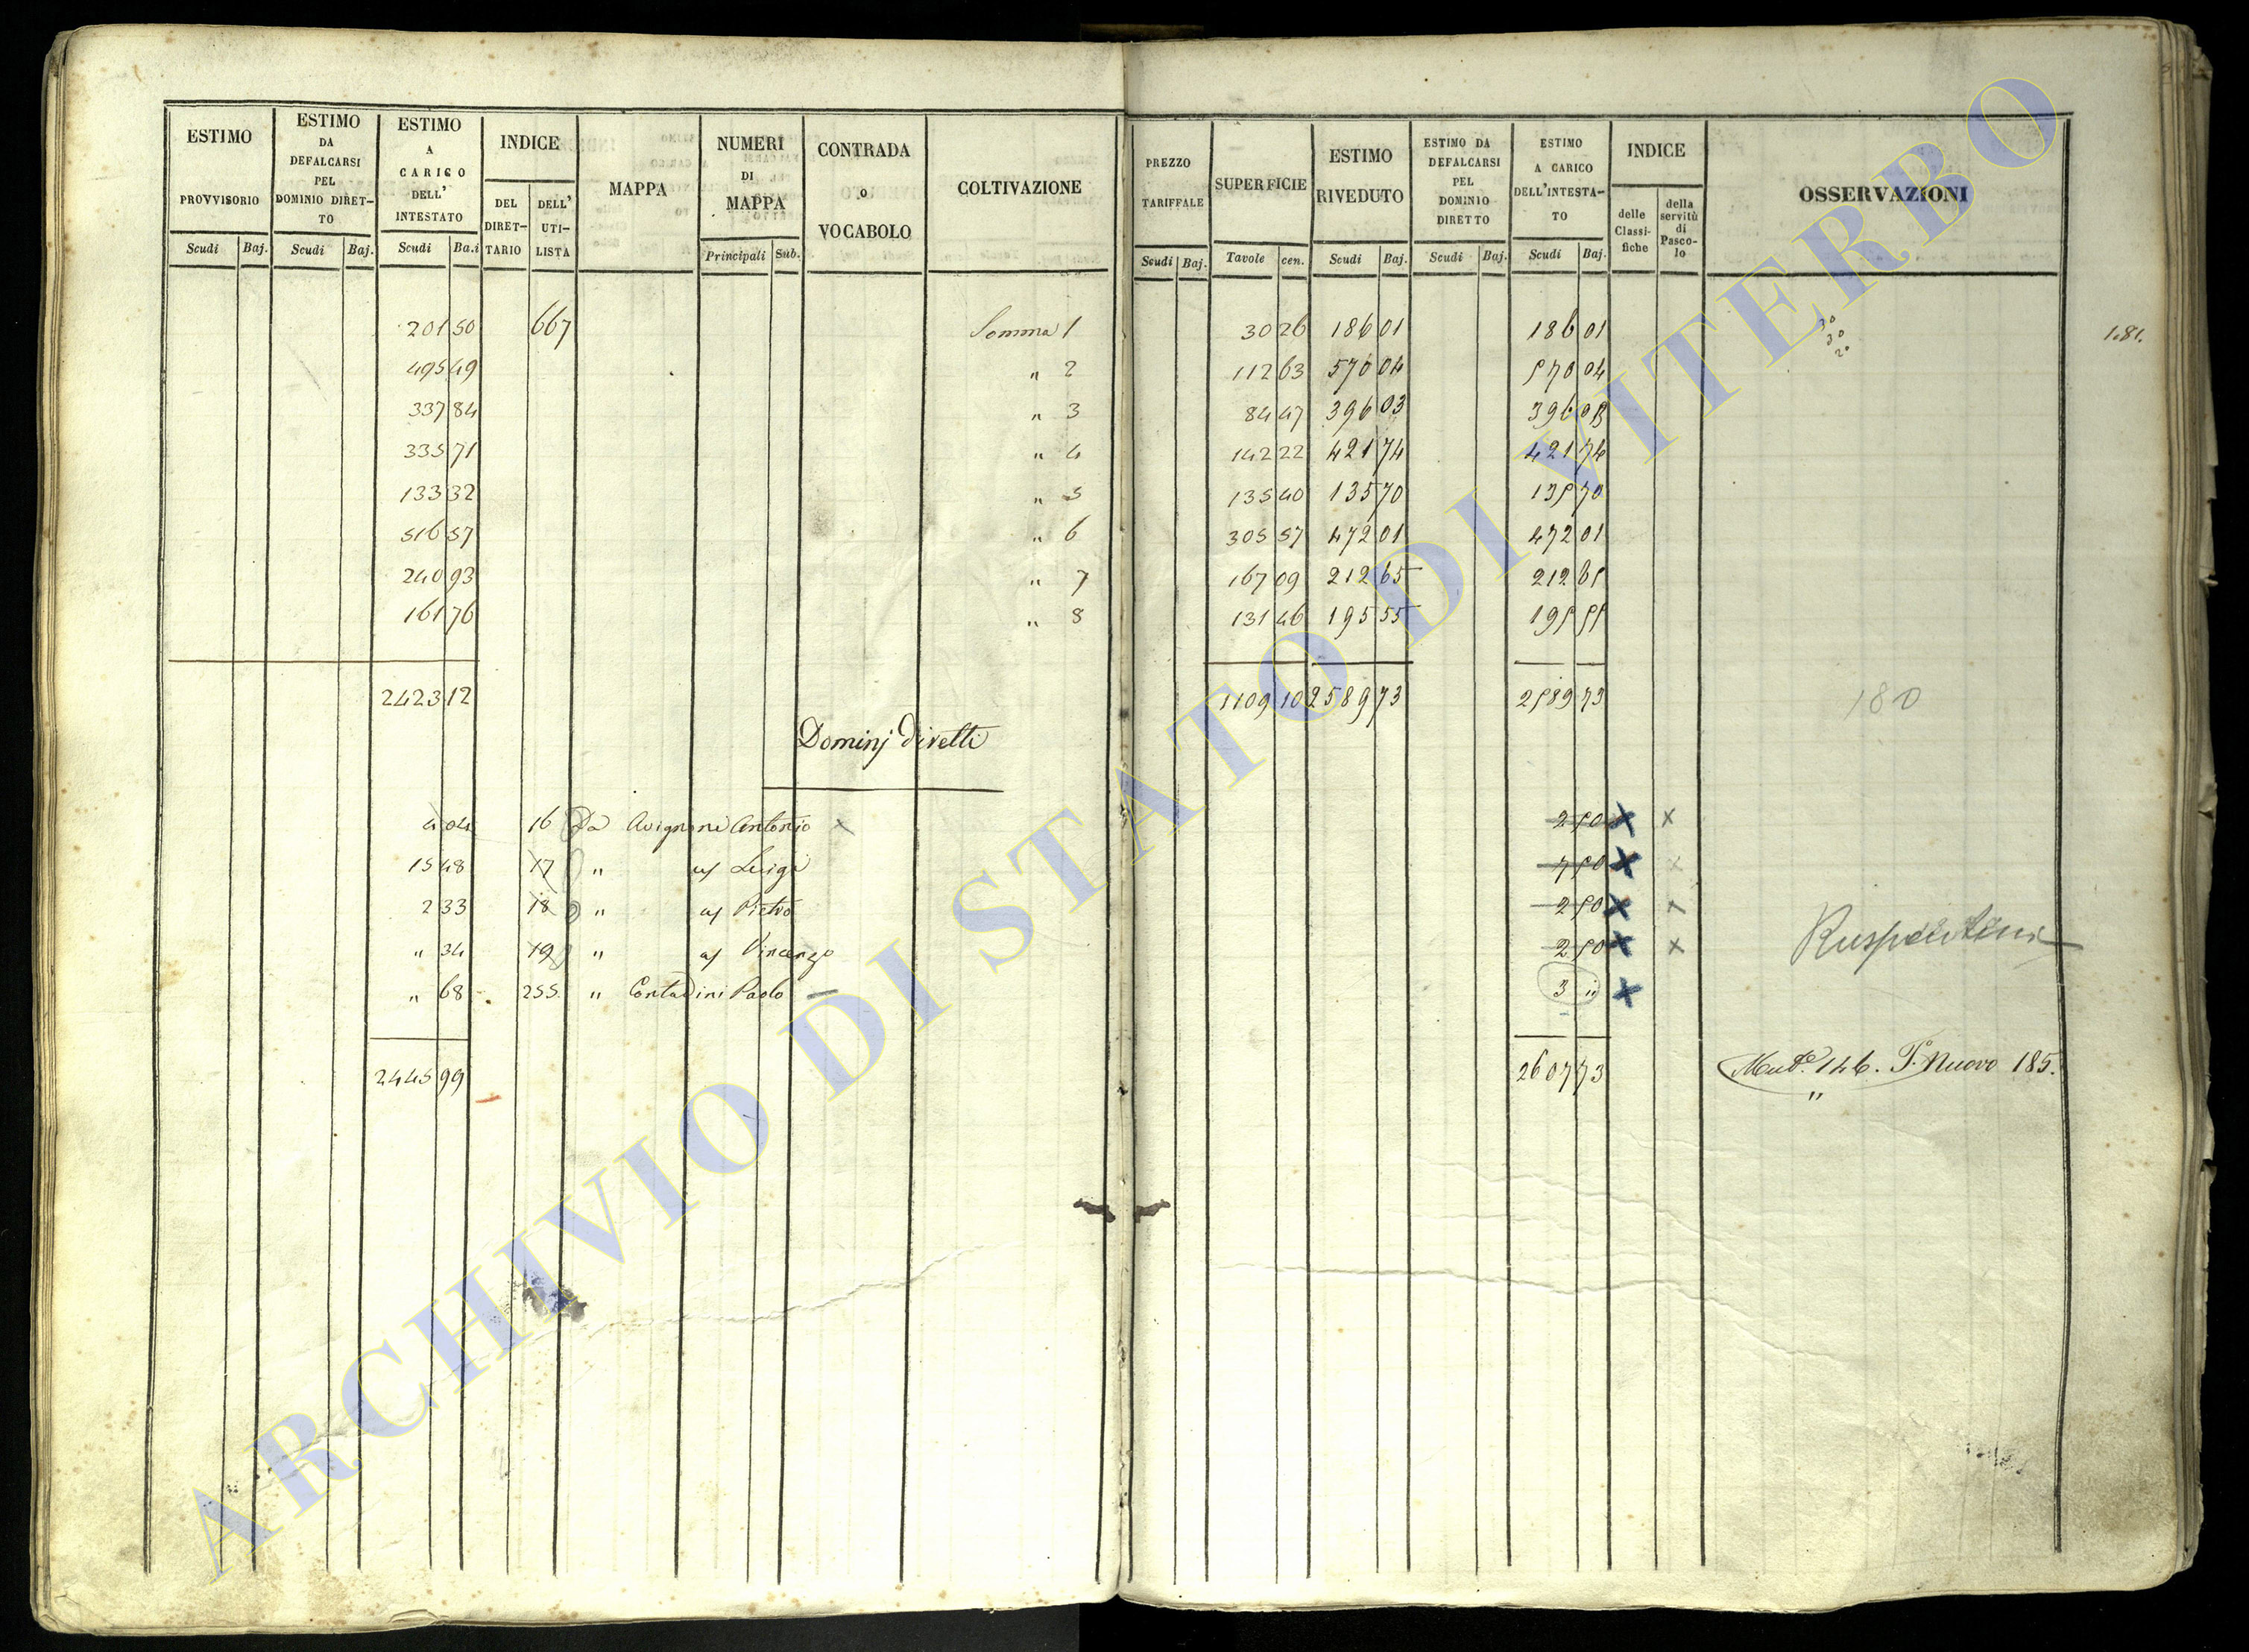 ESTIMO PROVVISORIO Scudi Baj.
ESTIMO DA DEFALCARSI PEL DOMINIO DIRET-TO Scudi Baj.
ESTIMO A CARICO DELL' INTESTATO Scudi Ba.i
INDICE DEL DIRET-TARIO DELL' UTI-LISTA
MAPPA
NUMERI DI MAPPA Principali Sub.
CONTRADA o VOCABOLO
COLTIVAZIONE
PREZZO TARIFFALE Scudi Baj.
SUPERFICIE Tavole cen.
ESTIMO RIVEDUTO Scudi Baj.
ESTIMO DA DEFALCARSI PEL DOMINIO DIRETTO Scudi Baj.
ESTIMO A CARICO DELL'INTESTA-TO Scudi Baj.
INDICE delle Classi-fiche della servitù di Pasco-lo
OSSERVAZIONI
201 50 667 Somma 1 30 26 186 01 186 01
181.
495 49 " 2 112 63 570 04 570 04
337 84 " 3 84 47 396 03 396 03
335 71 " 4 142 22 421 74 421 74
133 32 " 5 135 40 135 70 135 70
516 57 " 6 305 57 472 01 472 01
240 93 " 7 167 09 212 65 212 65
161 76 " 8 131 46 195 55 195 55
2423 12 1109 10 2589 73 2589 73 180
Dominj diretti
4 04 16 Da Avignoni Antonio x 2 50 x x
15 48 17 " Luigi 7 50 x x
2 33 18 " Pietro 2 50 x
" 34 19 " Vincenzo 2 50 x x
" 68 255 " Contadini Paolo — 3 " x
2445 99 2607 73 146. P. Nuovo 185.
"
ARCHIVIO DI STATO DI VITERBO